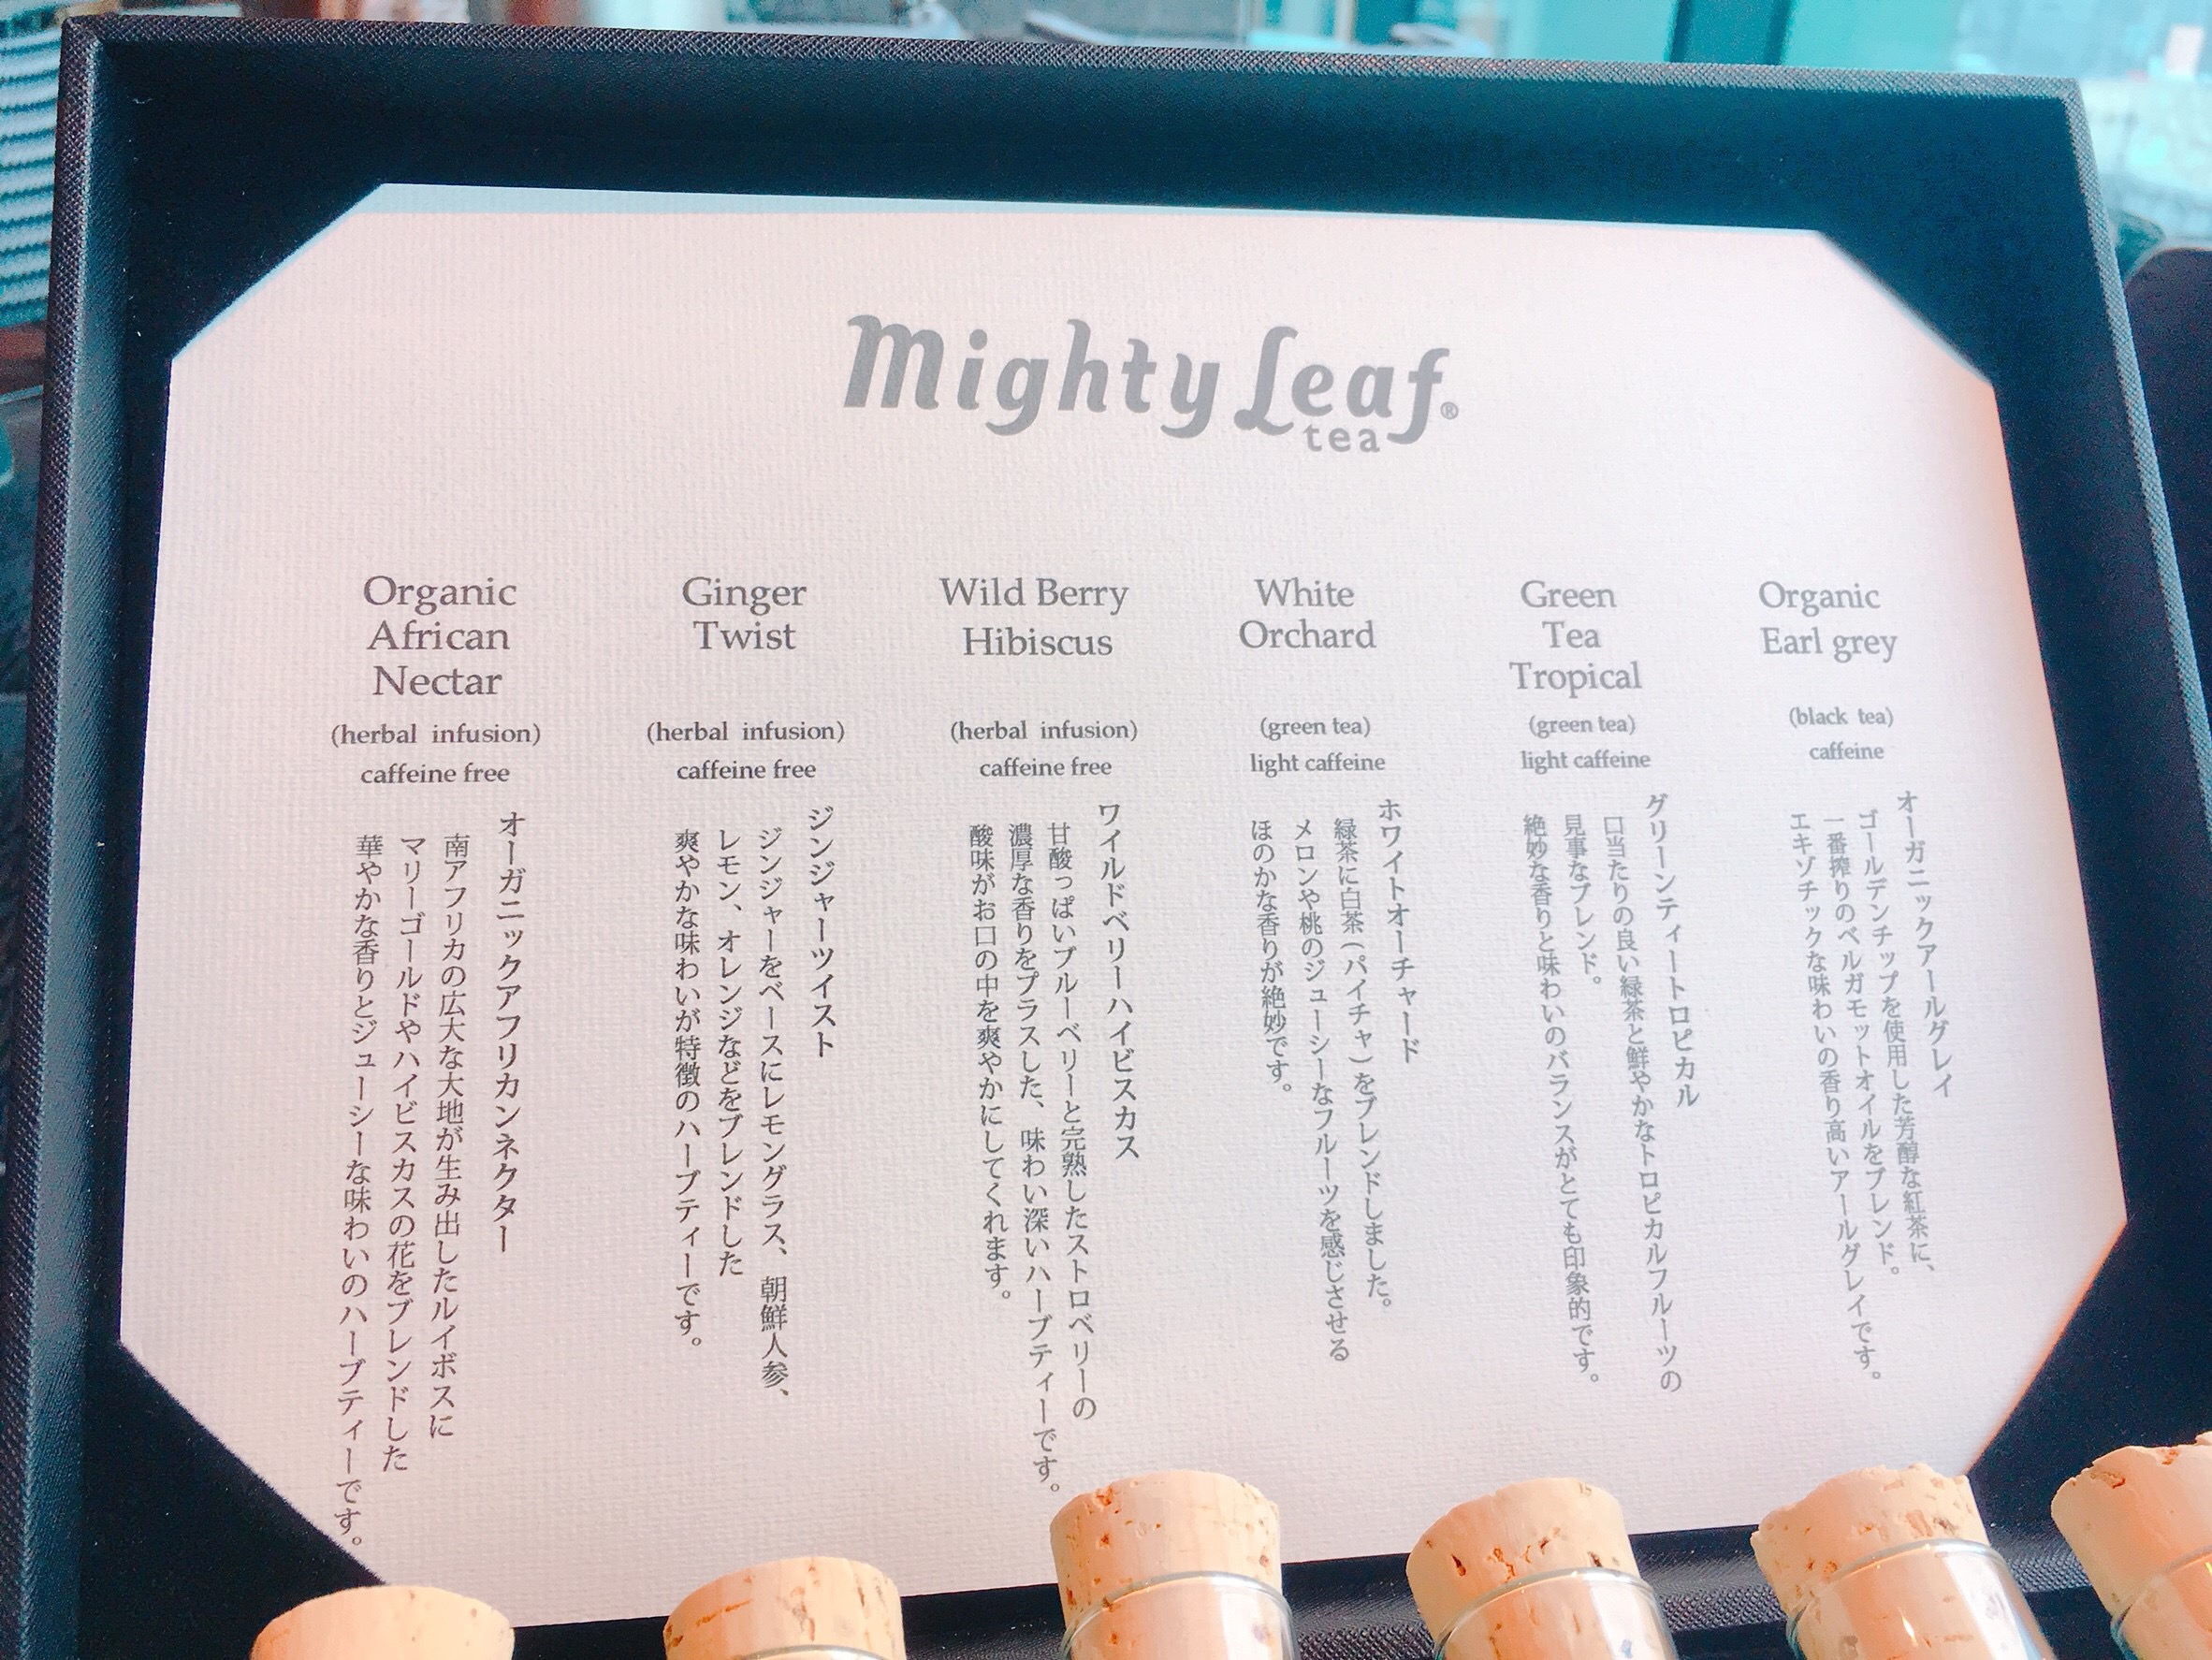 Mighty Leaf®
tea
Organic
African
Nectar
(herbal infusion)
caffeine free
オーガニックアフリカンネクター
南アフリカの広大な大地が生み出したルイボスに
マリーゴールドやハイビスカスの花をブレンドした
華やかな香りとジューシーな味わいのハーブティーです。
Ginger
Twist
(herbal infusion)
caffeine free
ジンジャーツイスト
ジンジャーをベースにレモングラス、朝鮮人参、
レモン、オレンジなどをブレンドした
爽やかな味わいが特徴のハーブティーです。
Wild Berry
Hibiscus
(herbal infusion)
caffeine free
ワイルドベリーハイビスカス
甘酸っぱいブルーベリーと完熟したストロベリーの
濃厚な香りをプラスした、味わい深いハーブティーです。
酸味がお口の中を爽やかにしてくれます。
White
Orchard
(green tea)
light caffeine
ホワイトオーチャード
緑茶に白茶(パイチャ)をブレンドしました。
メロンや桃のジューシーなフルーツを感じさせる
ほのかな香りが絶妙です。
Green
Tea
Tropical
(green tea)
light caffeine
グリーンティートロピカル
口当たりの良い緑茶と鮮やかなトロピカルフルーツの
見事なブレンド。
絶妙な香りと味わいのバランスがとても印象的です。
Organic
Earl grey
(black tea)
caffeine
オーガニックアールグレイ
ゴールデンチップを使用した芳醇な紅茶に、
一番搾りのベルガモットオイルをブレンド。
エキゾチックな味わいの香り高いアールグレイです。